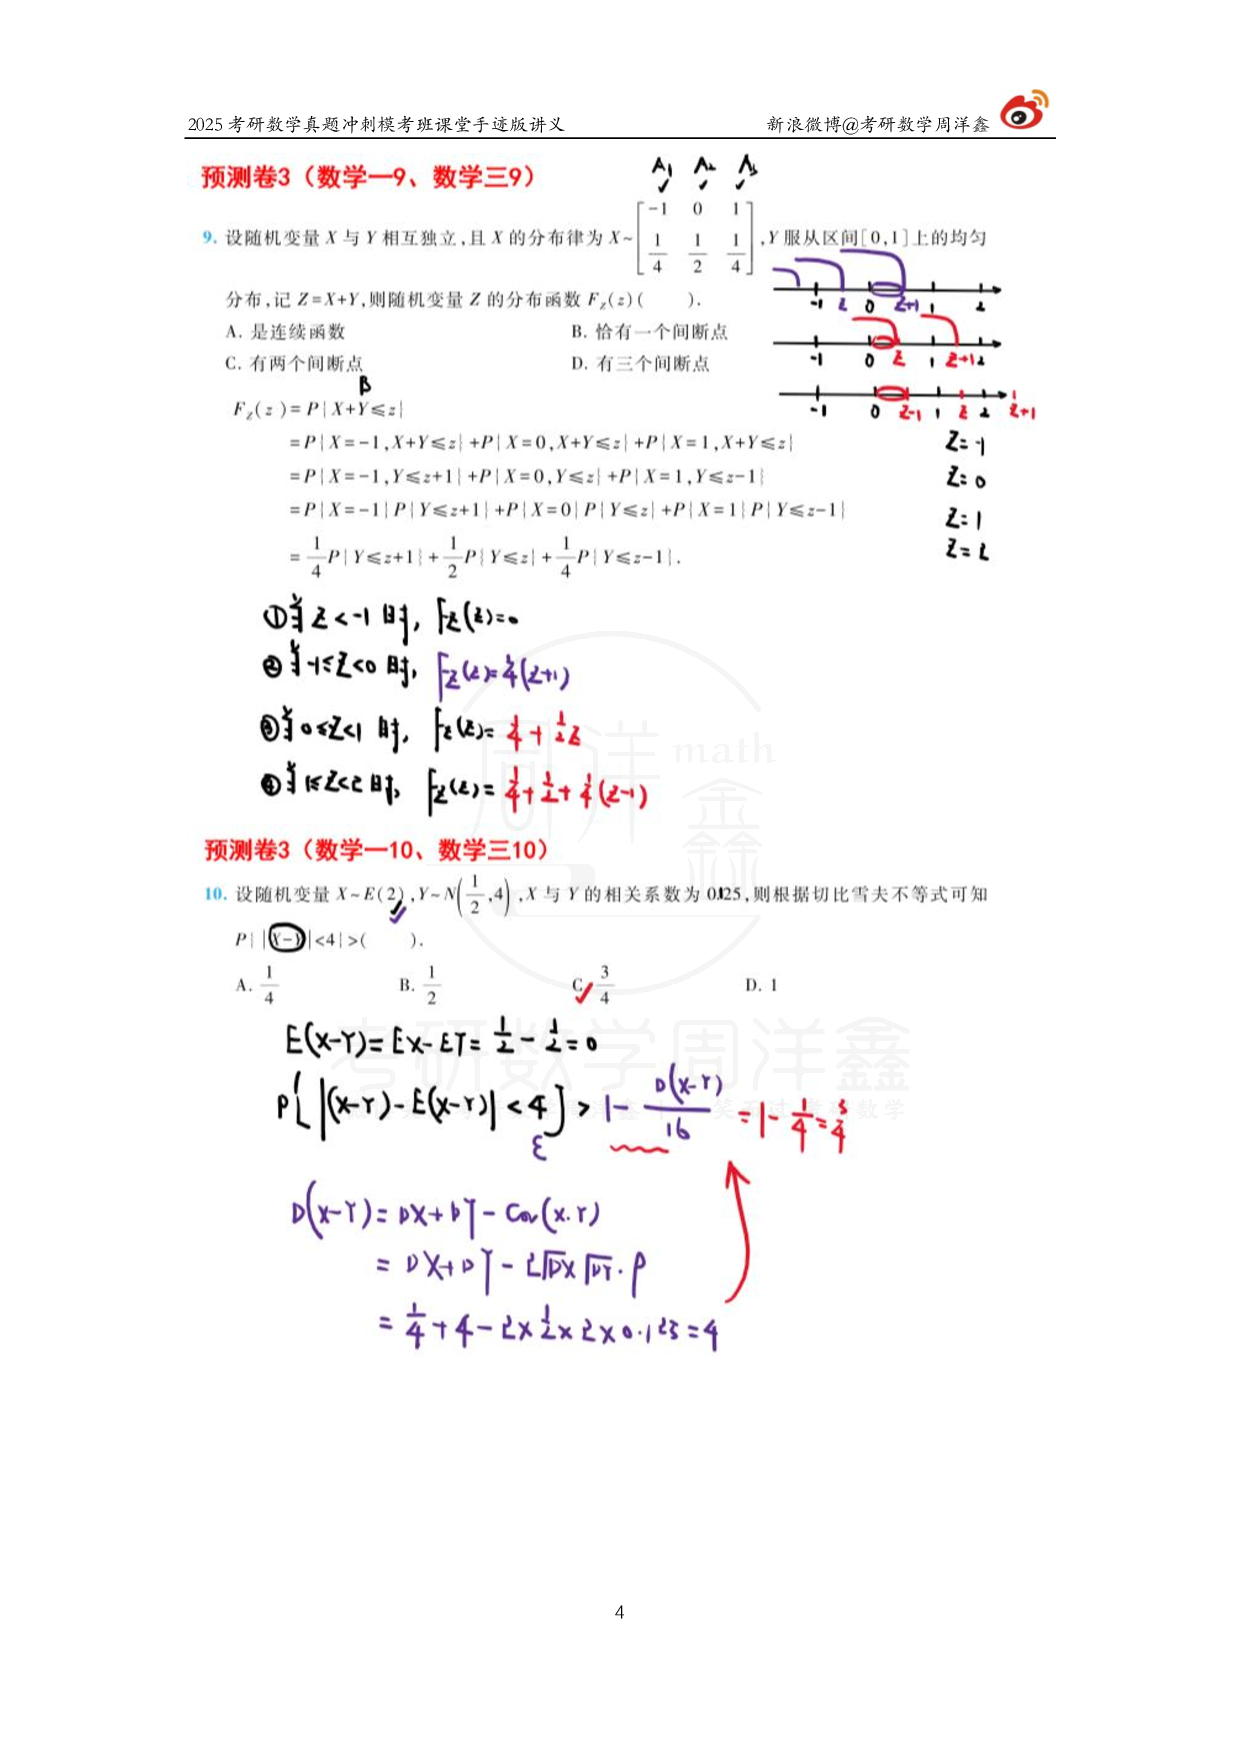 2025 考研数学真题冲刺模考班课堂手迹版讲义 新浪微博@考研数学周洋鑫
预测卷3（数学一9、数学三9）
A₁ A₂ A₃
-1 0 1
9. 设随机变量 X 与 Y 相互独立,且 X 的分布律为 X~ 1/4 1/2 1/4 ,Y 服从区间[0,1]上的均匀
-1 z 0 z+1 1 2
分布,记 Z=X+Y,则随机变量 Z 的分布函数 F_Z(z)( ).
A. 是连续函数 B. 恰有一个间断点
-1 0 z 1 z+1 2
C. 有两个间断点 D. 有三个间断点
B
-1 0 z-1 1 z 2 z+1
F_Z(z)=P{X+Y≤z}
=P{X=-1,X+Y≤z}+P{X=0,X+Y≤z}+P{X=1,X+Y≤z}
Z=-1
=P{X=-1,Y≤z+1}+P{X=0,Y≤z}+P{X=1,Y≤z-1}
Z=0
=P{X=-1}P{Y≤z+1}+P{X=0}P{Y≤z}+P{X=1}P{Y≤z-1}
Z=1
=1/4 P{Y≤z+1}+1/2 P{Y≤z}+1/4 P{Y≤z-1}.
Z=2
①当 z<-1 时, F_Z(z)=0
②当 -1≤z<0 时, F_Z(z)=1/4(z+1)
③当 0≤z<1 时, F_Z(z)=1/4+1/2 z
④当 1≤z<2 时, F_Z(z)=1/4+1/2+1/4(z-1)
周洋鑫 math
预测卷3（数学一10、数学三10）
10. 设随机变量 X~E(2),Y~N(1/2,4),X 与 Y 的相关系数为 0.125,则根据切比雪夫不等式可知
P{|X-Y|<4}>( ).
A. 1/4 B. 1/2 C. 3/4 D. 1
考研数学周洋鑫
E(X-Y)=EX-EY=1/2-1/2=0
P{|(X-Y)-E(X-Y)|<4}>1-D(X-Y)/16=1-1/4=3/4
ε
D(X-Y)=DX+DY-Cov(X.Y)
=DX+DY-2√DX √DY·ρ
=1/4+4-2×1/2×2×0.125=4
4